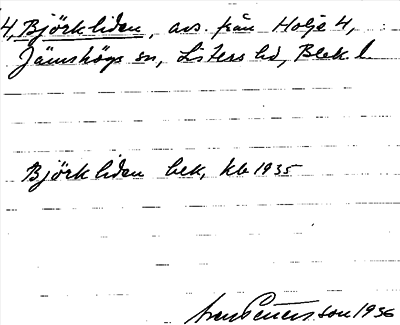 4, Björkliden, avs. från Holje 4,
Jämshögs sn, Listers hd, Blek. l.
Björkliden bek, kb 1935
Pettersson 1936